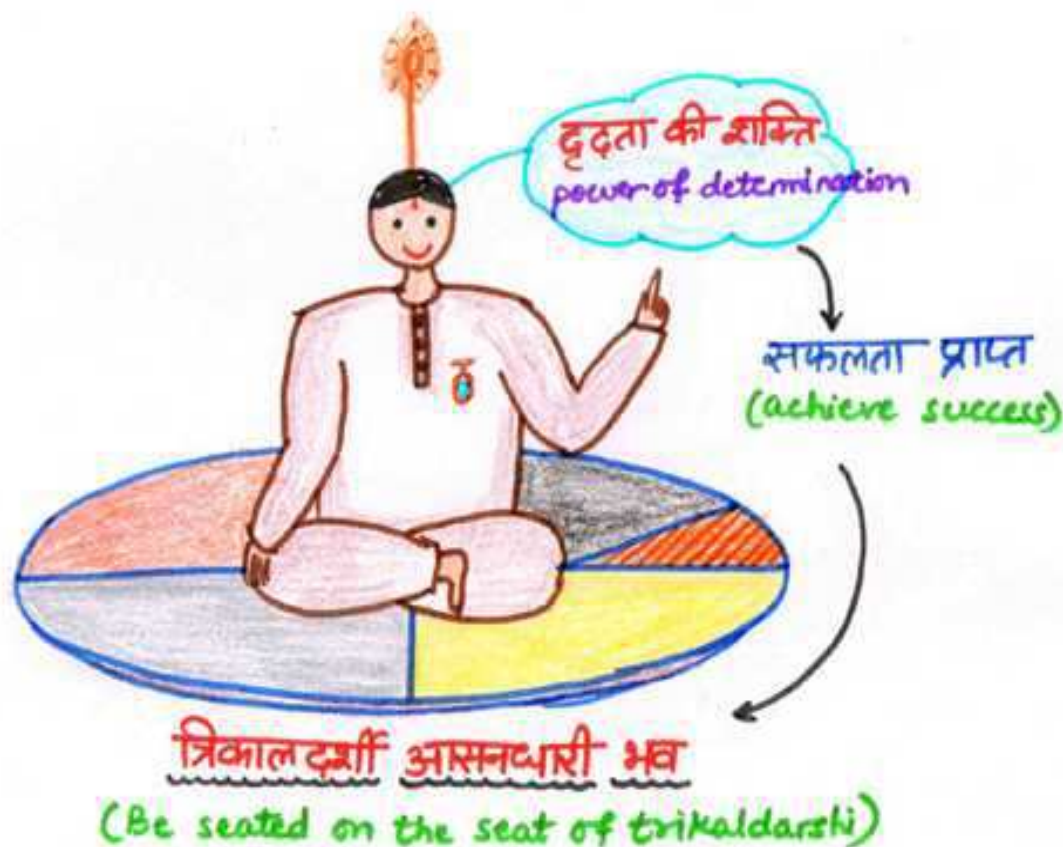 दृढ़ता की शक्ति
power of detemination
सफलता प्राप्त
(achieve success)
त्रिकालदर्शी आसनधारी भव
(Be seated on the seat of trikaldarshi)